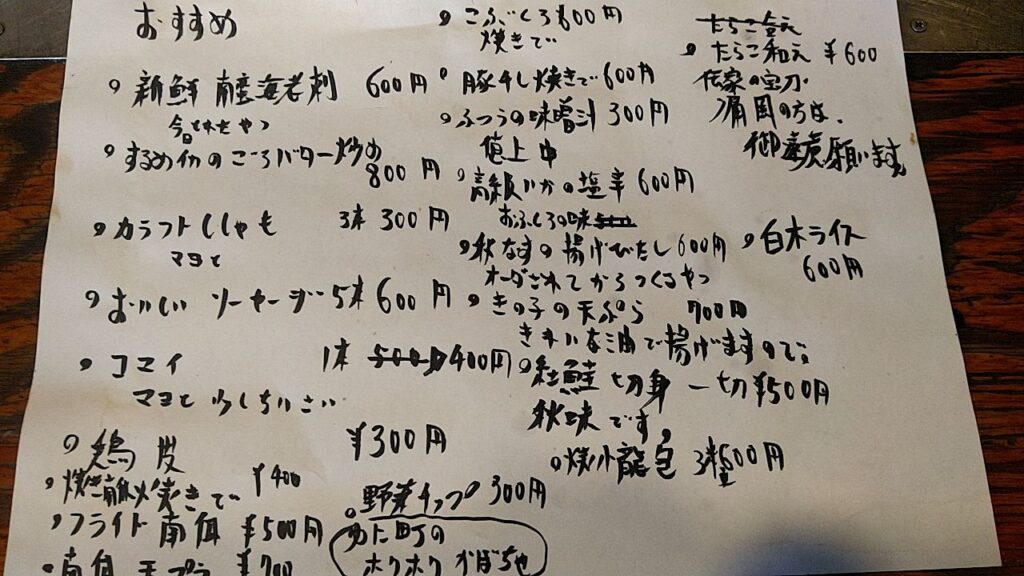 おすすめ
新鮮 南蛮海老刺 600円
今日とれたやつ
するめイカのごろバター炒め
800円
カラフトししゃも 3本 300円
マヨと
おいしい ソーセージ 5本 600円
コマイ 1本 500円 400円
マヨと 少しちいさい
鶏皮 ¥300円
焼き ¥400
フライド南瓜 ¥500円
南瓜 天プラ ¥700
こぶくろ 600円
焼きで
豚干し焼きで 600円
ふつうの味噌汁 300円
値上中
高級いかの塩辛 600円
おふくろの味
秋なすの揚げびたし 600円
オーダされてからつくるやつ
きの子の天ぷら 700円
きれいな油で揚げますので。
紅鮭 切身 一切 ¥500円
秋味です。
焼小龍包 3 600円
野菜チップ 300円
町の
ホクホク かぼちゃ
たらこ和え ¥600
伝家の宝刀。
痛風の方は、
御遠慮願います
白木ライス
600円